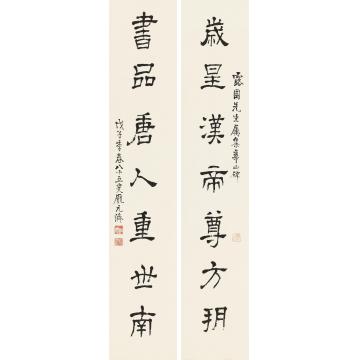 歲星漢帝尊方玥
露園先生屬集華山碑
書品唐人重世南
戊子季春八十五叟龐元濟